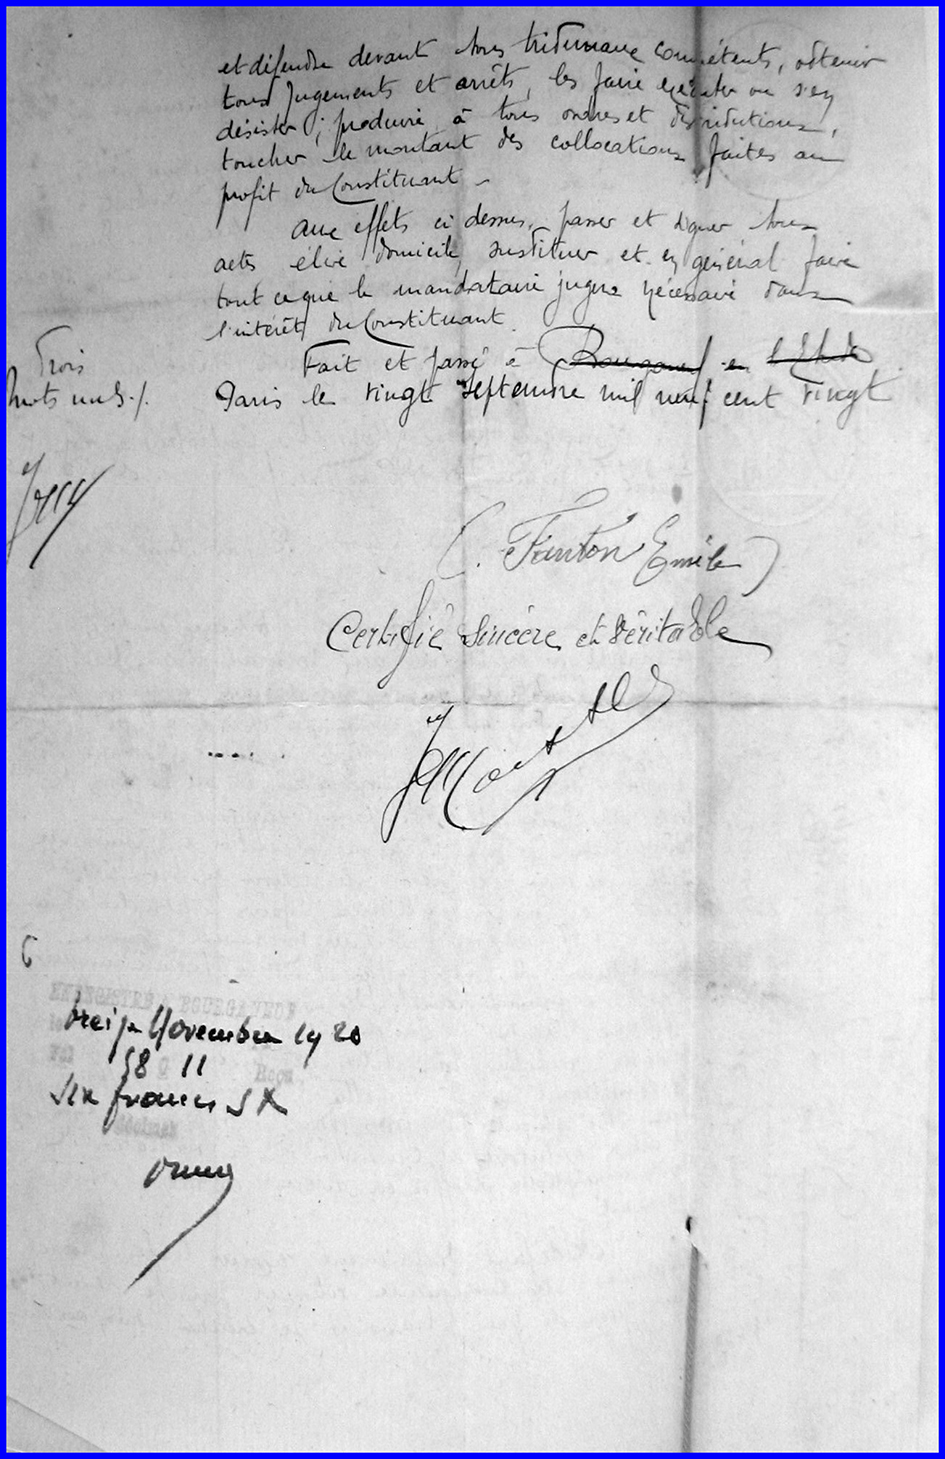 et défendre devant tous tribunaux compétents, obtenir
tous jugements et arrêts, les faire exécuter ou s'en
désister ; produire à tous ordres et distributions,
toucher le montant des collocations faites au
profit du Constituant -
Aux effets ci dessus, passer et signer tous
actes élire domicile, substituer et en général faire
tout ce que le mandataire jugera nécessaire dans
l'intérêt du Constituant.
Trois
mots nuls ./.
Fait et passé à en
Paris le vingt septembre mil neuf cent vingt
(. Fanton Emile)
Certifié Sincère et Véritable
ENREGISTRÉ A BOURGANEUF
treize Novembre 1920
58 11
Six francs